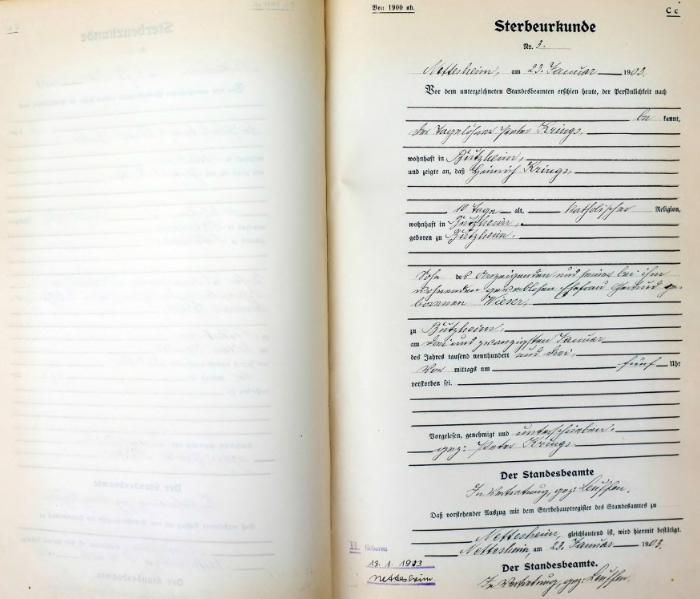 Von 1900 ab.
C c
Sterbeurkunde
Nr. 3.
Nettesheim, am 23. Januar 1903.
Vor dem unterzeichneten Standesbeamten erschien heute, der Persönlichkeit nach
be kannt,
der Tagelöhner Peter Krings,
wohnhaft in Bützheim,
und zeigte an, daß Heinrich Krings,
10 Tage alt, katholischer Religion,
wohnhaft in Bützheim,
geboren zu Bützheim,
Sohn des Anzeigenden und seiner bei ihm
wohnenden gewerblosen Ehefrau Gertrud ge-
borenen Wieser,
zu Bützheim,
am drei und zwanzigsten Januar
des Jahres tausend neunhundert und drei,
Vor mittags um fünf Uhr
verstorben sei.
Vorgelesen, genehmigt und unterschrieben.
gez: Peter Krings.
Der Standesbeamte
In Vertretung, gez:
Daß vorstehender Auszug mit dem Sterbehauptregister des Standesamtes zu
Nettesheim, gleichlautend ist, wird hiermit bestätigt.
Nettesheim, am 23. Januar 1903.
Der Standesbeamte.
In Vertretung, gez:
H. Geboren
13. 1. 1903
Nettesheim